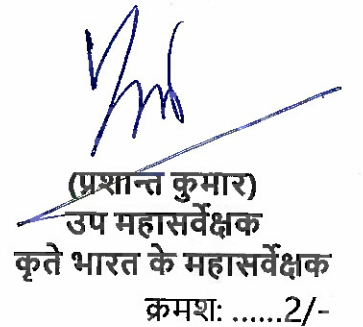 (प्रशान्त कुमार)
उप महासर्वेक्षक
कृते भारत के महासर्वेक्षक
क्रमश: ......2/-